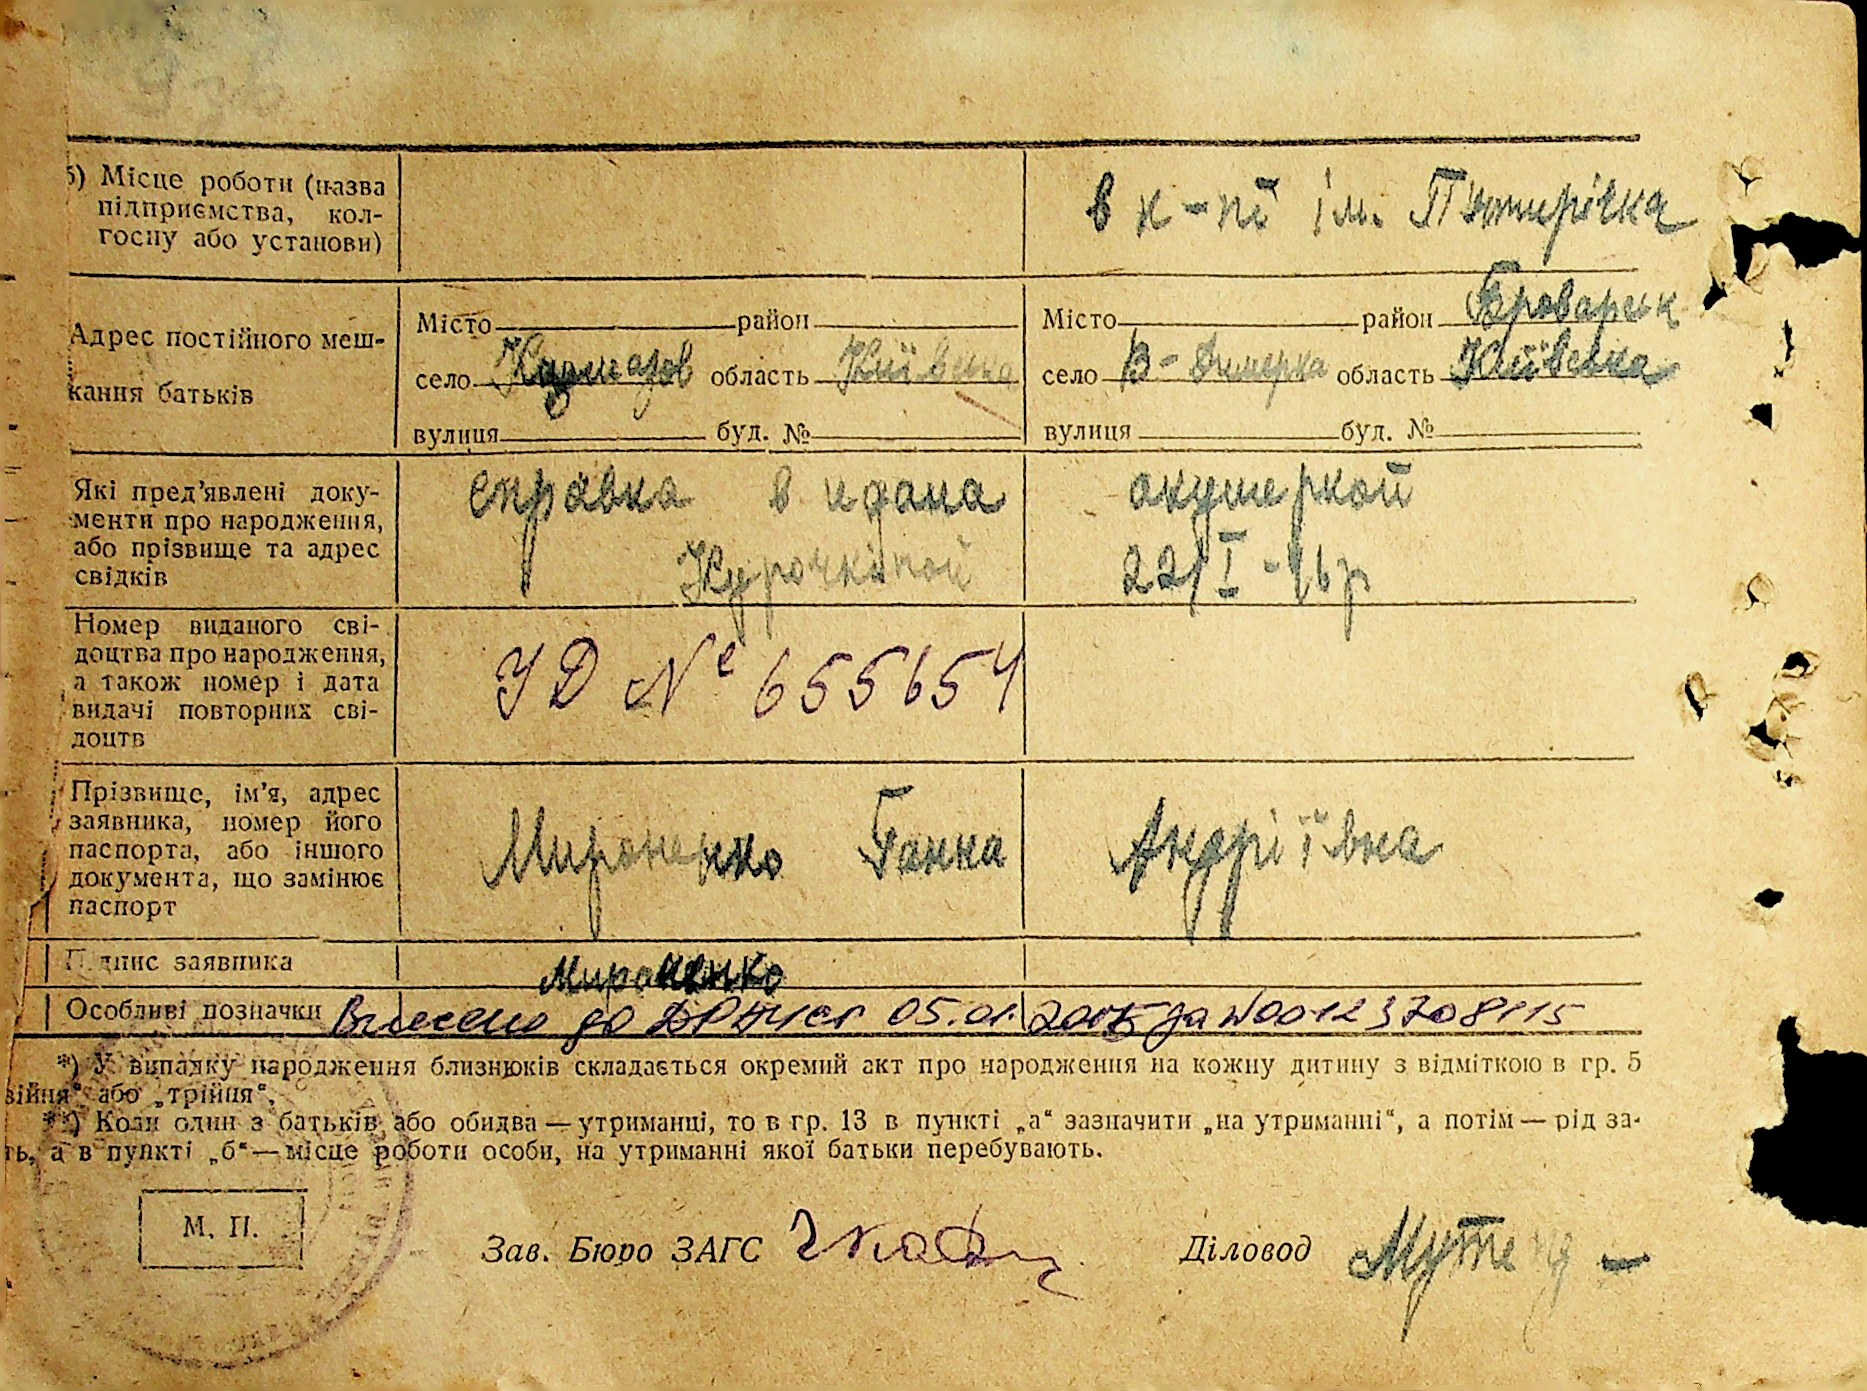 б) Місце роботи (назва
підприємства, кол-
госпу або установи)
в к-пі ім. Пятирічка
Адрес постійного меш-
кання батьків
Місто район
село область Київська
вулиця буд. №
Місто район Броварськ
село В-Димерка область Київська
вулиця буд. №
Які пред'явлені доку-
менти про народження,
або прізвище та адрес
свідків
справка в идана акушеркой
Курочкіной 22/I-46р
Номер виданого сві-
доцтва про народження,
а також номер і дата
видачі повторних сві-
доцтв
УД № 655654
Прізвище, ім'я, адрес
заявника, номер його
паспорта, або іншого
документа, що замінює
паспорт
Мироненко Ганна Андріївна
Підпис заявника
Мироненко
Особливі позначки Внесено до 05.01.2005 за №00123708115
*) У випадку народження близнюків складається окремий акт про народження на кожну дитину з відміткою в гр. 5
війня“ або „трійня“.
**) Коли один з батьків або обидва — утриманці, то в гр. 13 в пункті „а“ зазначити „на утриманні“, а потім — рід за-
ть, а в пункті „б“ — місце роботи особи, на утриманні якої батьки перебувають.
М. П.
Зав. Бюро ЗАГС
Діловод